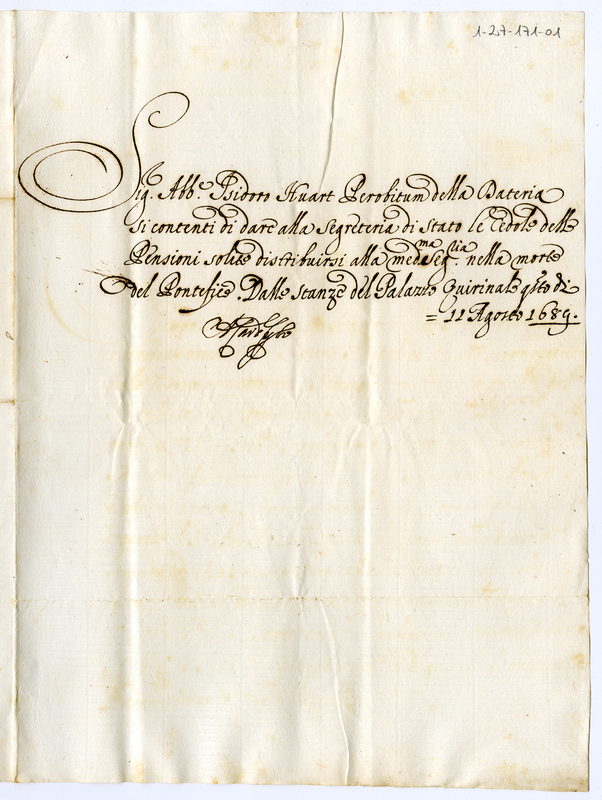 1-27-171-01
Sig. Abb.e Isidoro Huart Perobitum della Dateria
si contenti di dare alla Segreteria di Stato le Cedole delle
Pensioni solite distribuirsi alla med.ma Seg.ria nella morte
del Pontefice. Dalle Stanze del Palazzo Quirinale q.sto dì
= 11 Agosto 1689.